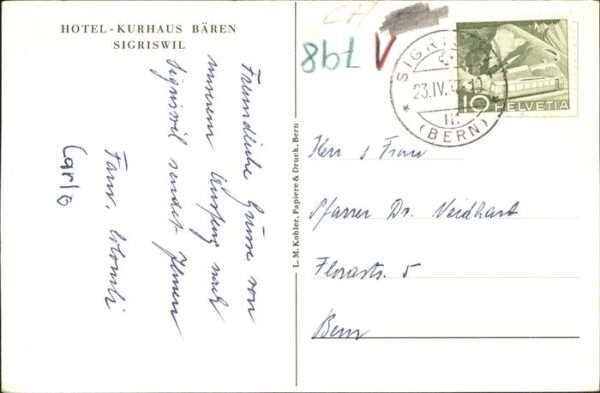 HOTEL - KURHAUS BÄREN
SIGRISWIL
Freundliche Grüsse von
unserem Ausflug nach
Sigriswil sendet Ihnen
Fam. Colombi
Carlo
L. M. Kohler, Papiere & Druck, Bern
CH
8bL V
SIGRISWIL
23.IV.
(BERN)
10
HELVETIA
Herr & Frau
Pfarrer Dr. Neidhart
Florastr. 5
Bern